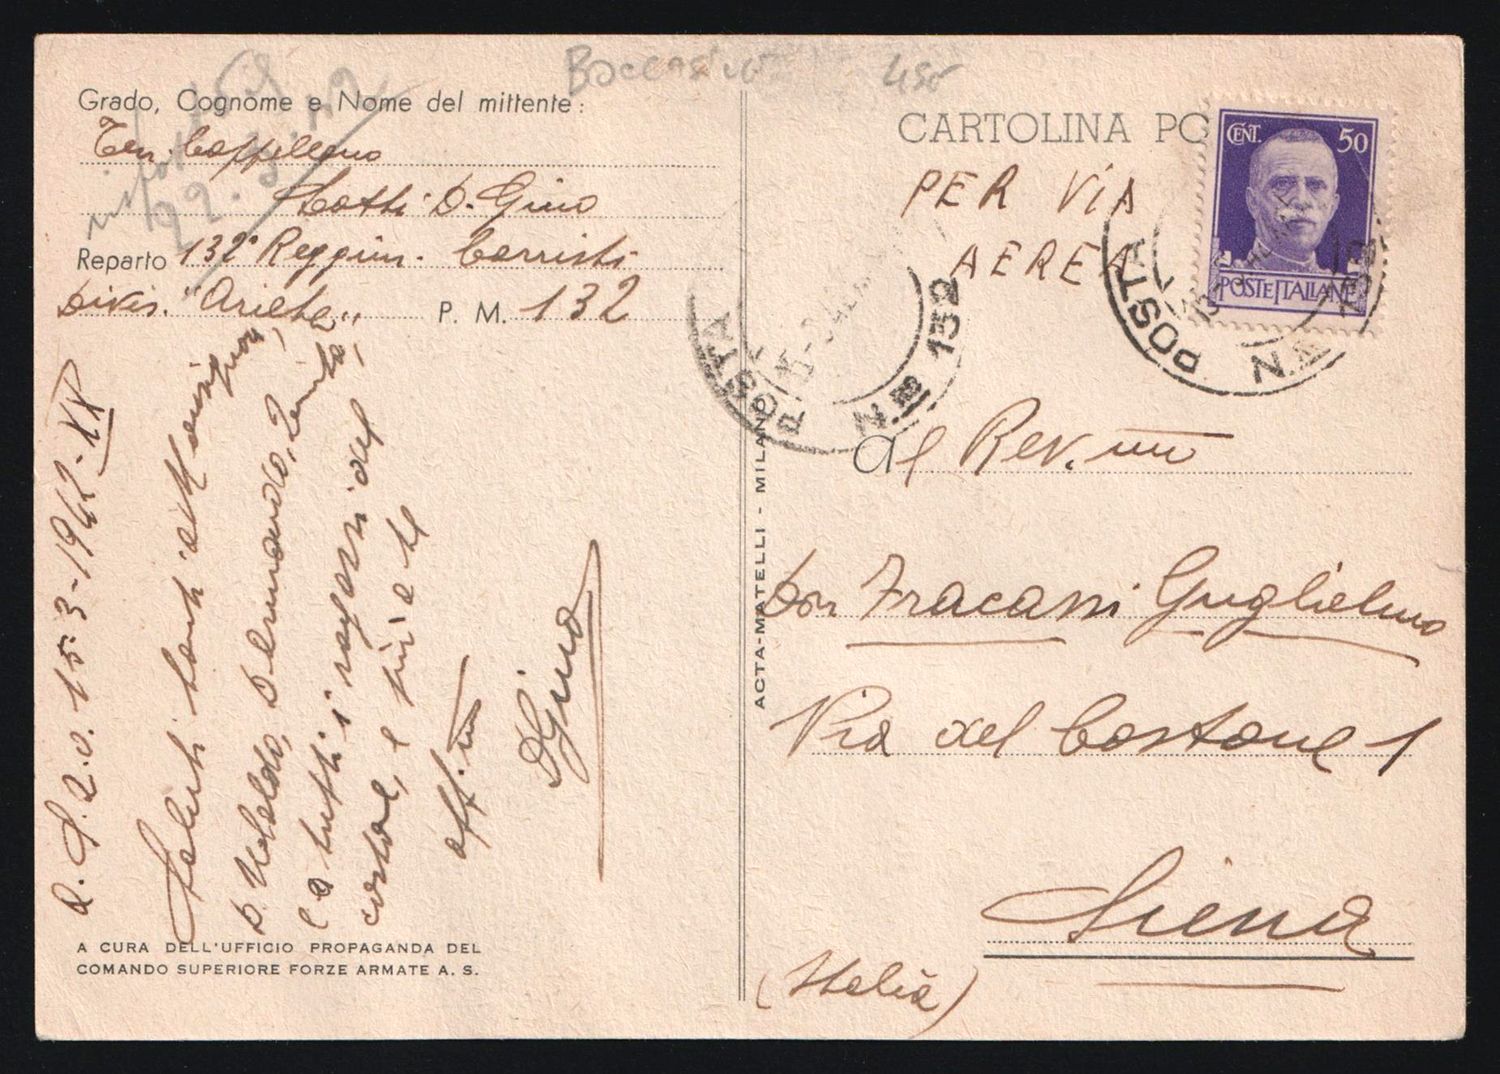 Boccasile 450
Grado, Cognome e Nome del mittente:
Ten. Cappellano
Lotti D. Gino
Reparto 132° Reggim. Carristi
Divis. "Ariete" P. M. 132
22.3.42
A. S. Z. O. 15-3-1942-XX
Saluti tanti a Monsignor,
D. Ubaldo, D. Armando, Zenità,
e a tutti i ragazzi del
costone, e più a te
aff.mo
D Gino
A CURA DELL'UFFICIO PROPAGANDA DEL
COMANDO SUPERIORE FORZE ARMATE A. S.
ACTA-MATELLI - MILANO
CARTOLINA PO
PER VIA
AEREA
CENT. 50
POSTE ITALIANE
POSTA N. 132
POSTA N. 132
Al Rev.mo
Don Fracassi Guglielmo
Via del Costone 1
Siena
(Italia)